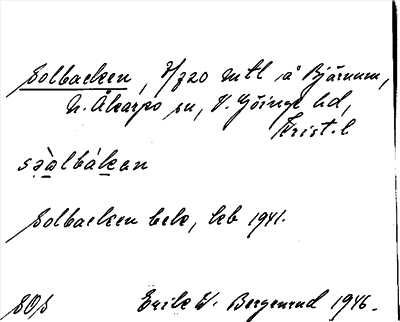 Solbacken, 7/720 mtl å Bjärnum,
N. Åkarps sn, V. Göinge hd,
Krist. l
sə̀ɑlbákan
Solbacken bek, leb 1941.
SOS Erik W. Bergenrud 1946.